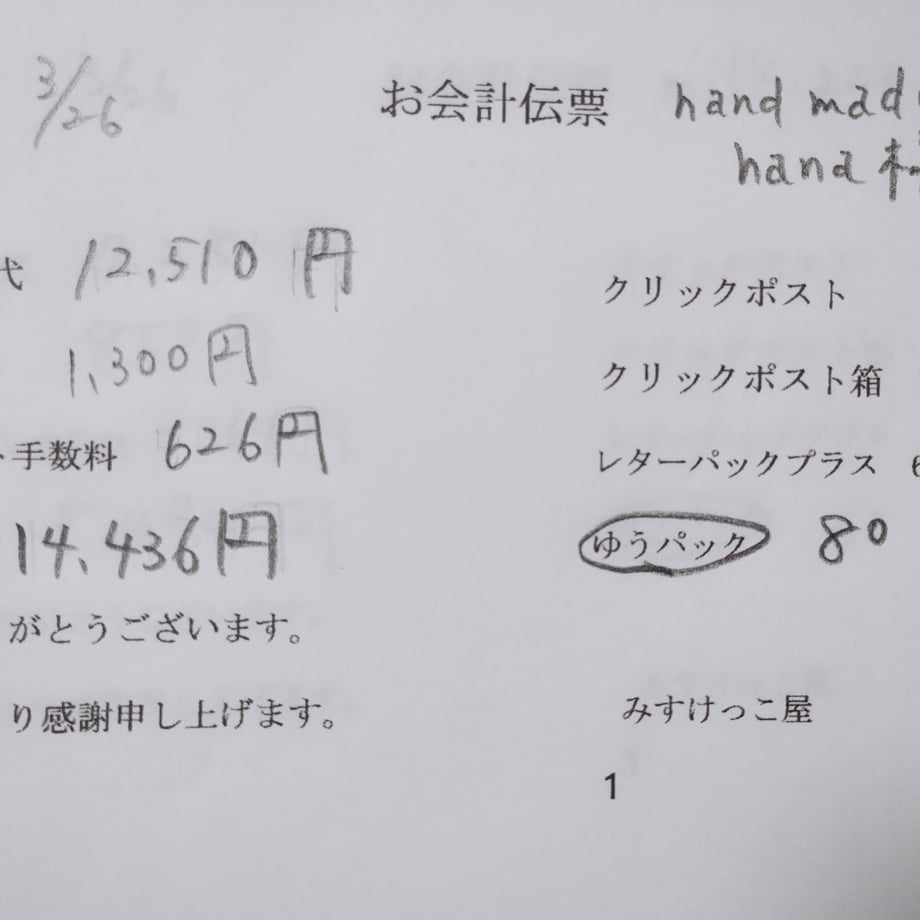 3/26
お会計伝票 hand mad
hana 様
代 12,510円
クリックポスト
1,300円
クリックポスト箱
ト手数料 626円
レターパックプラス 6
14,436円
ゆうパック 80
がとうございます。
り感謝申し上げます。
みすけっこ屋
1